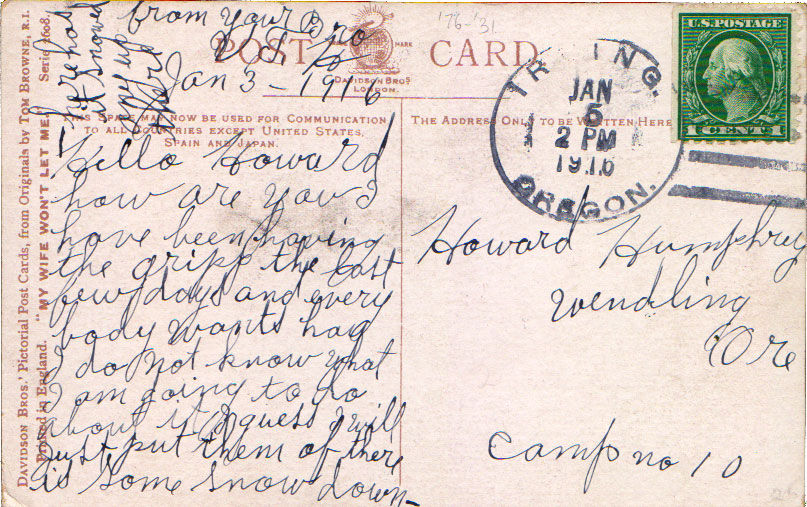 from Your Bro
'76-'31
POST CARD
TRADE MARK
DAVIDSON BROS.
LONDON.
Jan 3 - 1916
THIS SPACE MAY NOW BE USED FOR COMMUNICATION
TO ALL COUNTRIES EXCEPT UNITED STATES,
SPAIN AND JAPAN.
THE ADDRESS ONLY TO BE WRITTEN HERE
Hello Howard
how are you I
have been having
the gripp the last
few days and every
body wants hay
I do not know what
I am going to do
about it I guess I will
just put them of there
is some snow down-
here has
it snowed
up
there
U.S. POSTAGE
1 CENT 1
IRVING.
JAN
5
2 PM
1916
OREGON.
Howard Humphry
Wendling
Ore
Camp no 10
DAVIDSON BROS.' Pictorial Post Cards, from Originals by TOM BROWNE, R.I.
Printed in England. "MY WIFE WON'T LET ME." Series 2608.